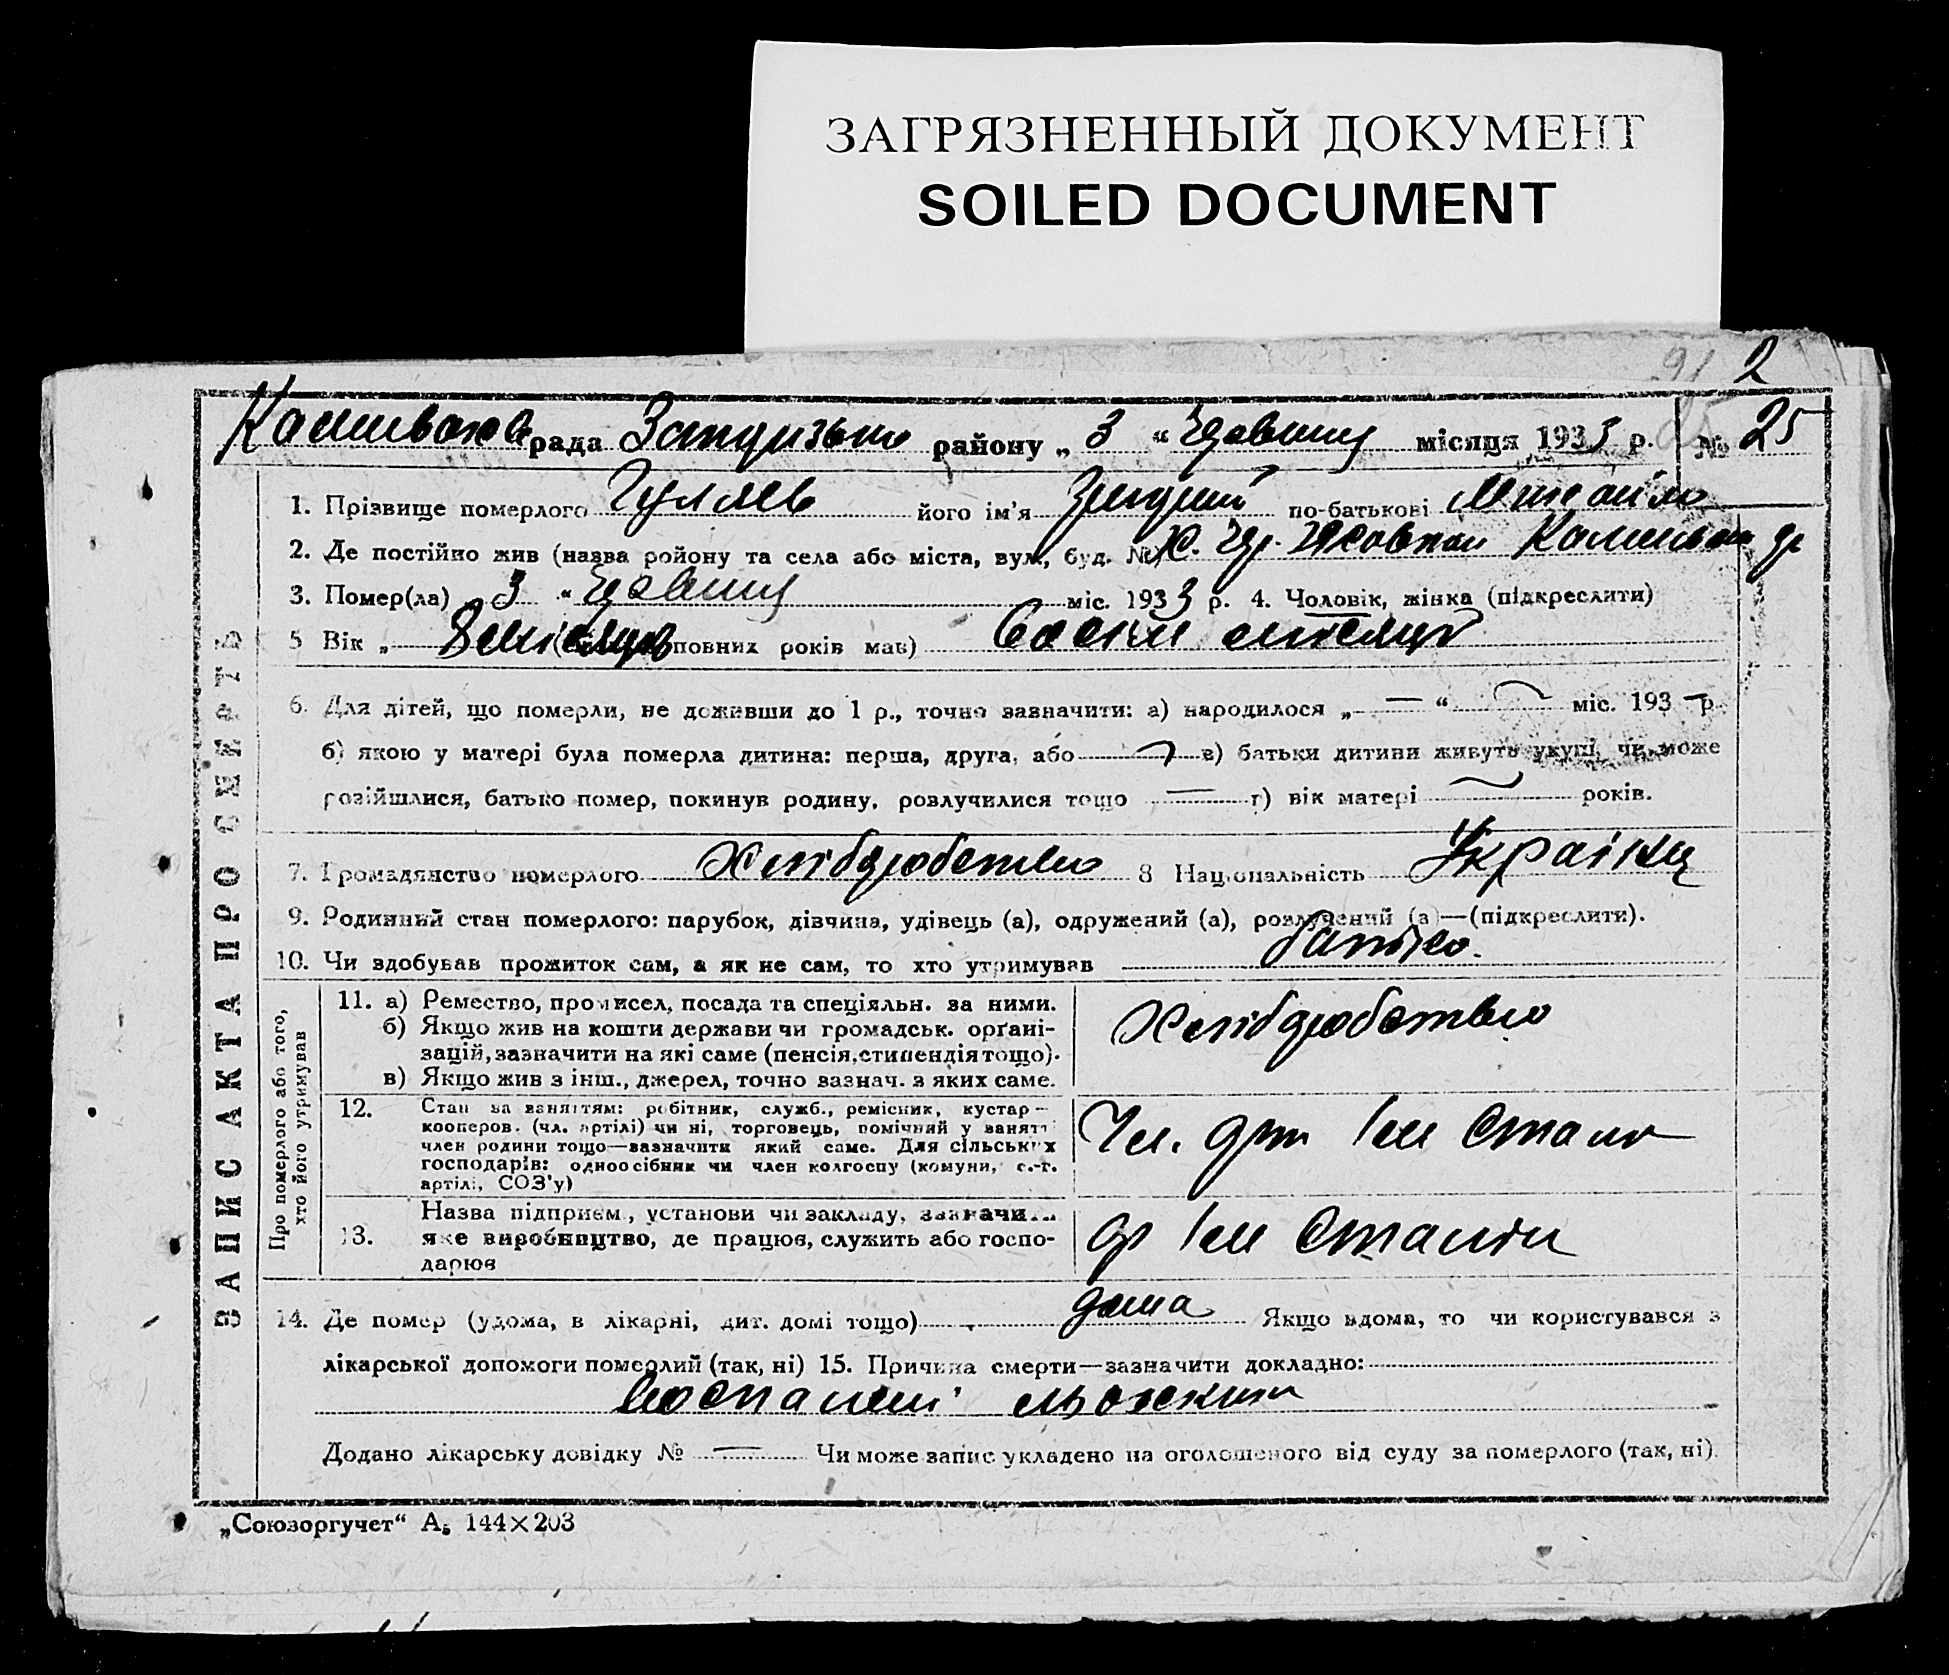 ЗАГРЯЗНЕННЫЙ ДОКУМЕНТ
SOILED DOCUMENT
91 2
рада району „ 3 “ місяця 1933 р. № 25
ЗАПИС АКТА ПРО СМЕРТЬ
1. Прізвище померлого Гуляєв його ім'я по-батькові
2. Де постійно жив (назва ройону та села або міста, вул, буд. №)
3. Помер(ла) 3 “ міс. 1933 р. 4. Чоловік, жінка (підкреслити)
5 Вік „ 8 місяців повних років мав) місяців
6. Для дітей, що померли, не доживши до 1 р., точно зазначити: а) народилося „ — “ міс. 193 — р.
б) якою у матері була померла дитина: перша, друга, або в) батьки дитини живуть укупі, чи може
розійшлися, батько помер, покинув родину, розлучилися тощо — г) вік матері років.
7. Громадянство померлого Хлібороб­ство 8 Національність Українец
9. Родинний стан померлого: парубок, дівчина, удівець (а), одружений (а), розлучений (а)—(підкреслити).
10. Чи здобував прожиток сам, а як не сам, то хто утримував батько.
Про померлого або того,
хто його утримував
11. а) Ремество, промисел, посада та спеціяльн. за ними.
б) Якщо жив на кошти держави чи громадськ. орґані-
зацій, зазначити на які саме (пенсія, стипендія тощо).
в) Якщо жив з інш., джерел, точно зазнач. з яких саме.
12. Стан за заняттям: робітник, служб., ремісник, кустар—
кооперов. (чл. артілі) чи ні, торговець, помічний у занятті
член родини тощо—зазначити який саме. Для сільських
господарів: одноосібник чи член колгоспу (комуни, с.-г.
артілі, СОЗ'у)
Чл. Ім Сталі
13. Назва підприєм., установи чи закладу, зазначи
яке виробництво, де працює, служить або госпо-
дарює
Ім Сталін
14. Де помер (удома, в лікарні, дит. домі тощо) дома Якщо вдома, то чи користувався з
лікарської допомоги померлий (так, ні) 15. Причина смерти—зазначити докладно:
Воспаленi льохких
Додано лікарську довідку № — Чи може запис укладено на оголошеного від суду за померлого (так, ні).
„Союзоргучет“ А5 144×203